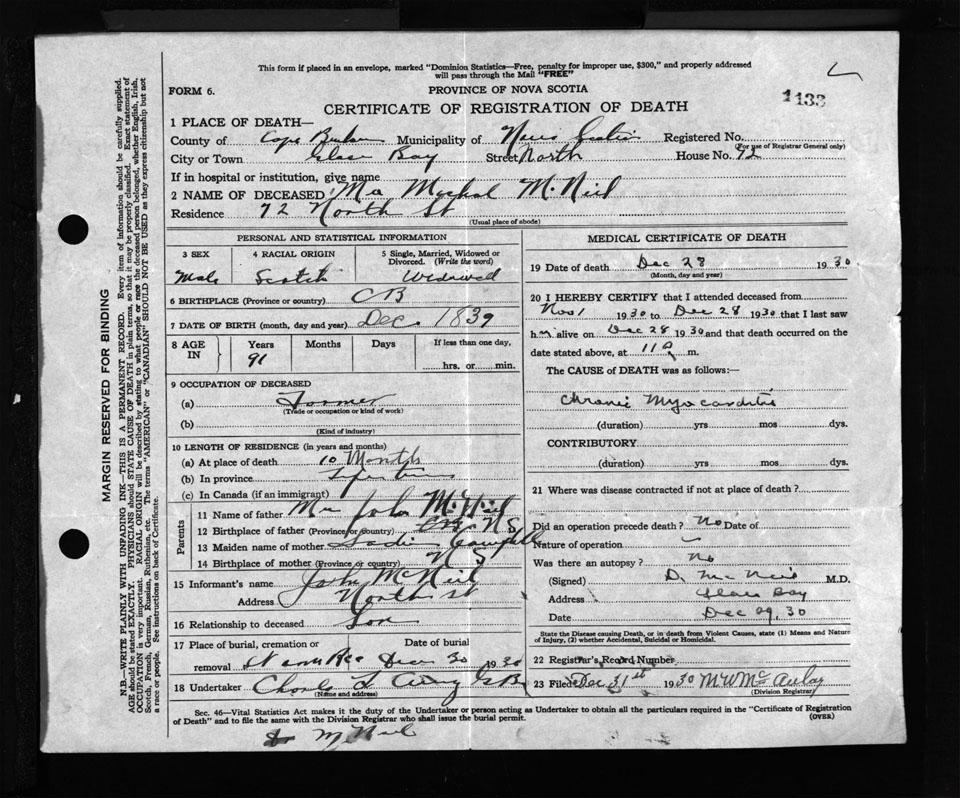 This form if placed in an envelope, marked "Dominion Statistics—Free, penalty for improper use, $300," and properly addressed
will pass through the Mail "FREE"
FORM 6.
PROVINCE OF NOVA SCOTIA
1133
CERTIFICATE OF REGISTRATION OF DEATH
1 PLACE OF DEATH—
County of Cape Breton Municipality of Nova Scotia Registered No.
(For use of Registrar General only)
City or Town Glace Bay Street North House No. 72
If in hospital or institution, give name
2 NAME OF DECEASED Mr McNeil
Residence 72 North St
(Usual place of abode)
PERSONAL AND STATISTICAL INFORMATION
3 SEX 4 RACIAL ORIGIN 5 Single, Married, Widowed or
Divorced. (Write the word)
Male Scotch Widowed
6 BIRTHPLACE (Province or country) C B
7 DATE OF BIRTH (month, day and year) Dec 1839
8 AGE IN Years Months Days If less than one day,
91 hrs. or min.
9 OCCUPATION OF DECEASED
(a) Farmer
(Trade or occupation or kind of work)
(b)
(Kind of industry)
10 LENGTH OF RESIDENCE (in years and months)
(a) At place of death 10 Months
(b) In province
(c) In Canada (if an immigrant)
Parents
11 Name of father Mr John McNeil
12 Birthplace of father (Province or country) N S
13 Maiden name of mother Campbell
14 Birthplace of mother (Province or country) N S
15 Informant's name John McNeil
Address North st
16 Relationship to deceased Son
17 Place of burial, cremation or Date of burial
removal Dec 30 1930
18 Undertaker Charles G B
(Name and address)
MEDICAL CERTIFICATE OF DEATH
19 Date of death Dec 28 1930
(Month, day and year)
20 I HEREBY CERTIFY that I attended deceased from
Nov 1 1930 to Dec 28 1930 that I last saw
h m alive on Dec 28 1930 and that death occurred on
date stated above, at 11 m.
The CAUSE of DEATH was as follows:—
Chronic Myocarditis
(duration) yrs mos dys.
CONTRIBUTORY
(duration) yrs mos dys.
21 Where was disease contracted if not at place of death?
Did an operation precede death? No Date of
Nature of operation
Was there an autopsy? No
(Signed) D. McNeil M.D.
Address Glace Bay
Date Dec 29, 30
State the Disease causing Death, or in death from Violent Causes, state (1) Means and Nature
of Injury, (2) whether Accidental, Suicidal or Homicidal.
22 Registrar's Record Number
23 Filed Dec 31st 1930 M W McAulay
(Division Registrar)
Sec. 46—Vital Statistics Act makes it the duty of the Undertaker or person acting as Undertaker to obtain all the particulars required in the "Certificate of Registration
of Death" and to file the same with the Division Registrar who shall issue the burial permit.
(OVER)
Dr McNeil
MARGIN RESERVED FOR BINDING
N.B.—WRITE PLAINLY WITH UNFADING INK—THIS IS A PERMANENT RECORD. Every item of information should be carefully supplied.
AGE should be stated EXACTLY. PHYSICIANS should STATE CAUSE OF DEATH in plain terms, so that it may be properly classified. Exact statement of
OCCUPATION is very important. RACIAL ORIGIN will be described by stating to what people or race the deceased person belonged, whether English, Irish,
Scotch, French, German, Russian, Ruthenian, etc. The terms "AMERICAN" or "CANADIAN" SHOULD NOT BE USED as they express citizenship but not
a race or people. See instructions on back of Certificate.